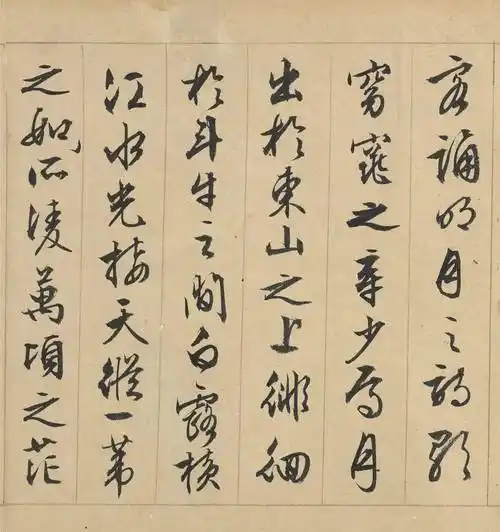 客誦明月之詩歌
窈窕之章少焉月
出於東山之上徘徊
於斗牛之間白露橫
江水光接天縱一葦
之如所淩萬頃之茫